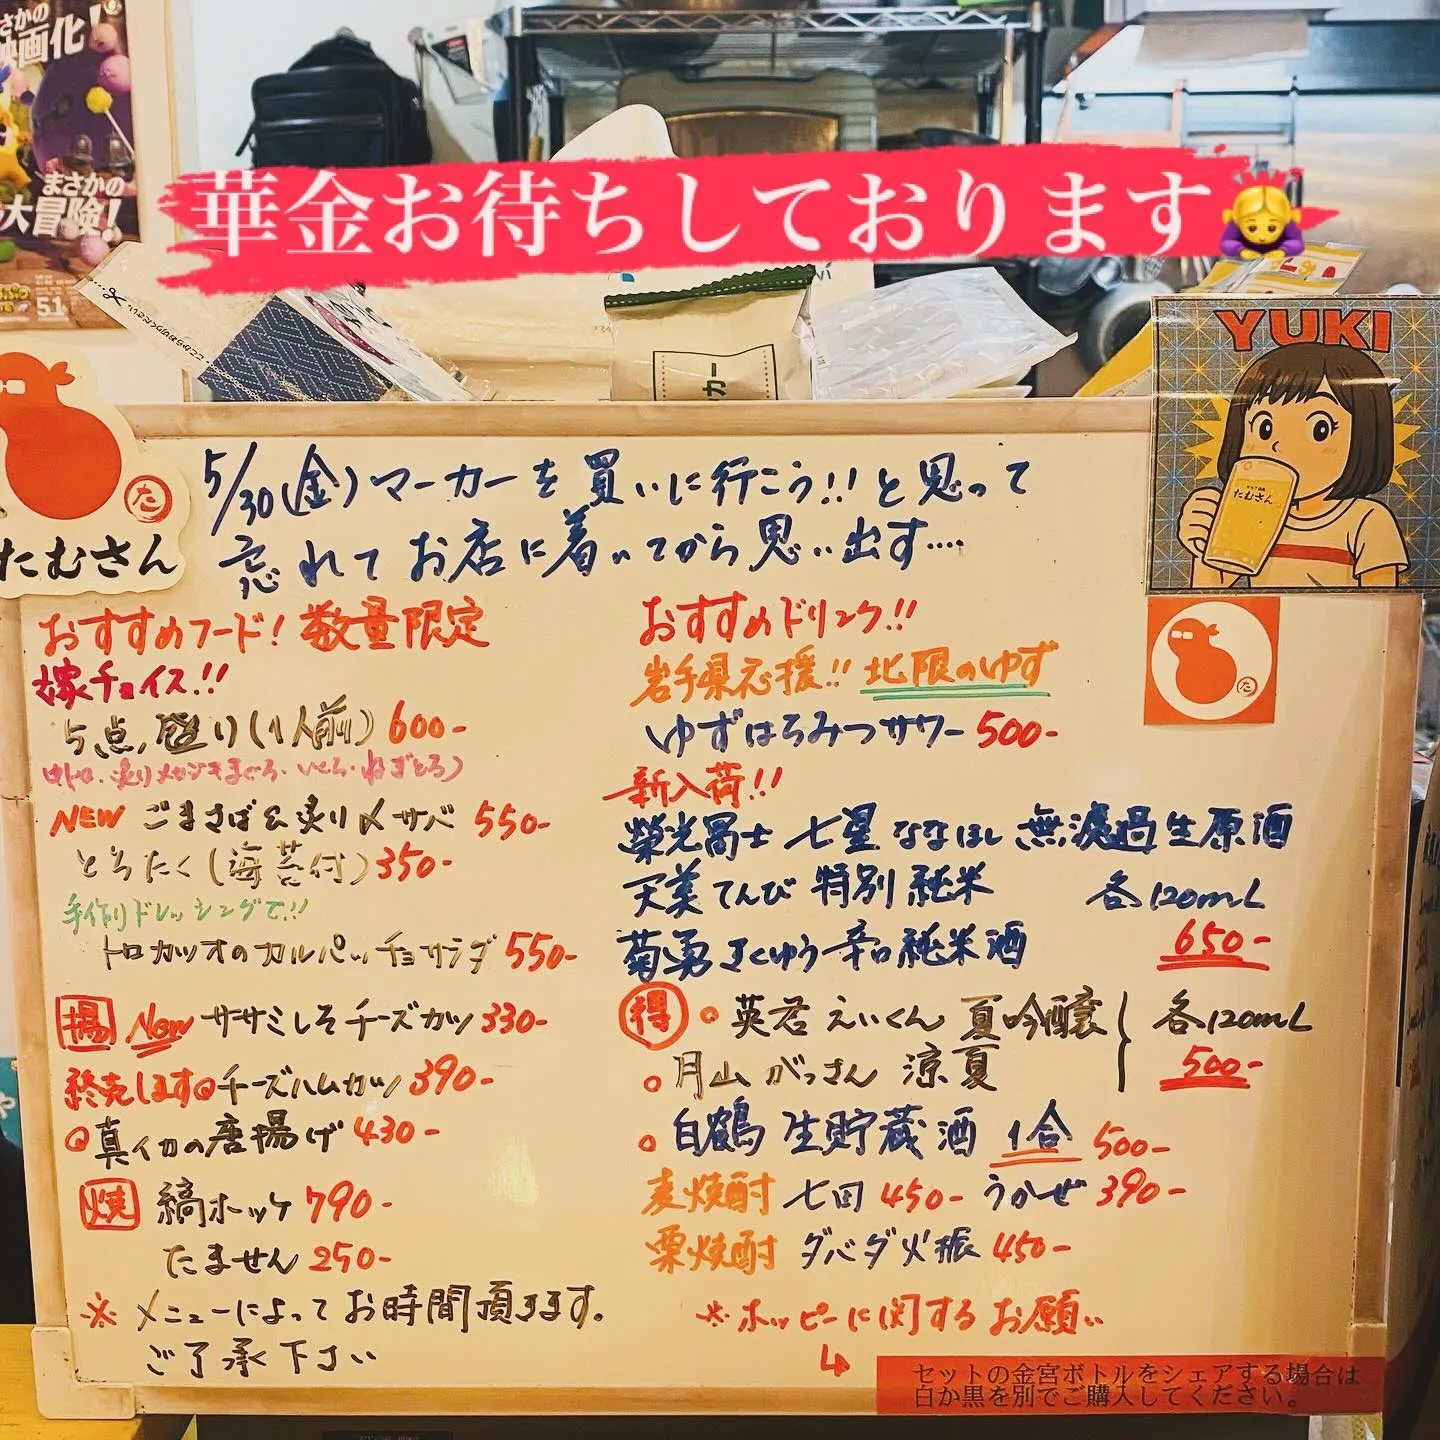 さかの
映画化!
まさかの
大冒険!
5.1
華金お待ちしております🙇‍♀️
ここからお切りください
カー
YUKI
たむさん
た
たむさん
5/30(金)マーカーを買いに行こう!!と思って
忘れてお店に着いてから思い出す....
おすすめフード!数量限定
嫁チョイス!!
5点盛り(1人前)600-
(中トロ・炙りメカジキまぐろ・いくら・ねぎとろ)
NEW ごまさば&炙り〆サバ 550-
とろたく(海苔付)350-
手作りドレッシングで!!
トロカツオのカルパッチョサラダ 550-
揚 New ササミしそチーズカツ 330-
終売します チーズハムカツ 390-
真イカの唐揚げ 430-
焼 縞ホッケ 790-
たません 250-
※メニューによってお時間頂きます。
ご了承下さい
おすすめドリンク!!
岩手県応援!! 北限のゆず
ゆずはちみつサワー 500-
新入荷!!
榮光冨士 七星 ななほし 無濾過生原酒
天美 てんび 特別純米 各120mL
菊勇 きくゆう 辛口純米酒 650-
た
得 英君 えいくん 夏吟醸 各120mL
月山 がっさん 涼夏 500-
白鶴 生貯蔵酒 1合 500-
麦焼酎 七田 450- うかぜ 390-
栗焼酎 ダバダ火振 450-
※ホッピーに関するお願い
↳
セットの金宮ボトルをシェアする場合は
白か黒を別でご購入してください。